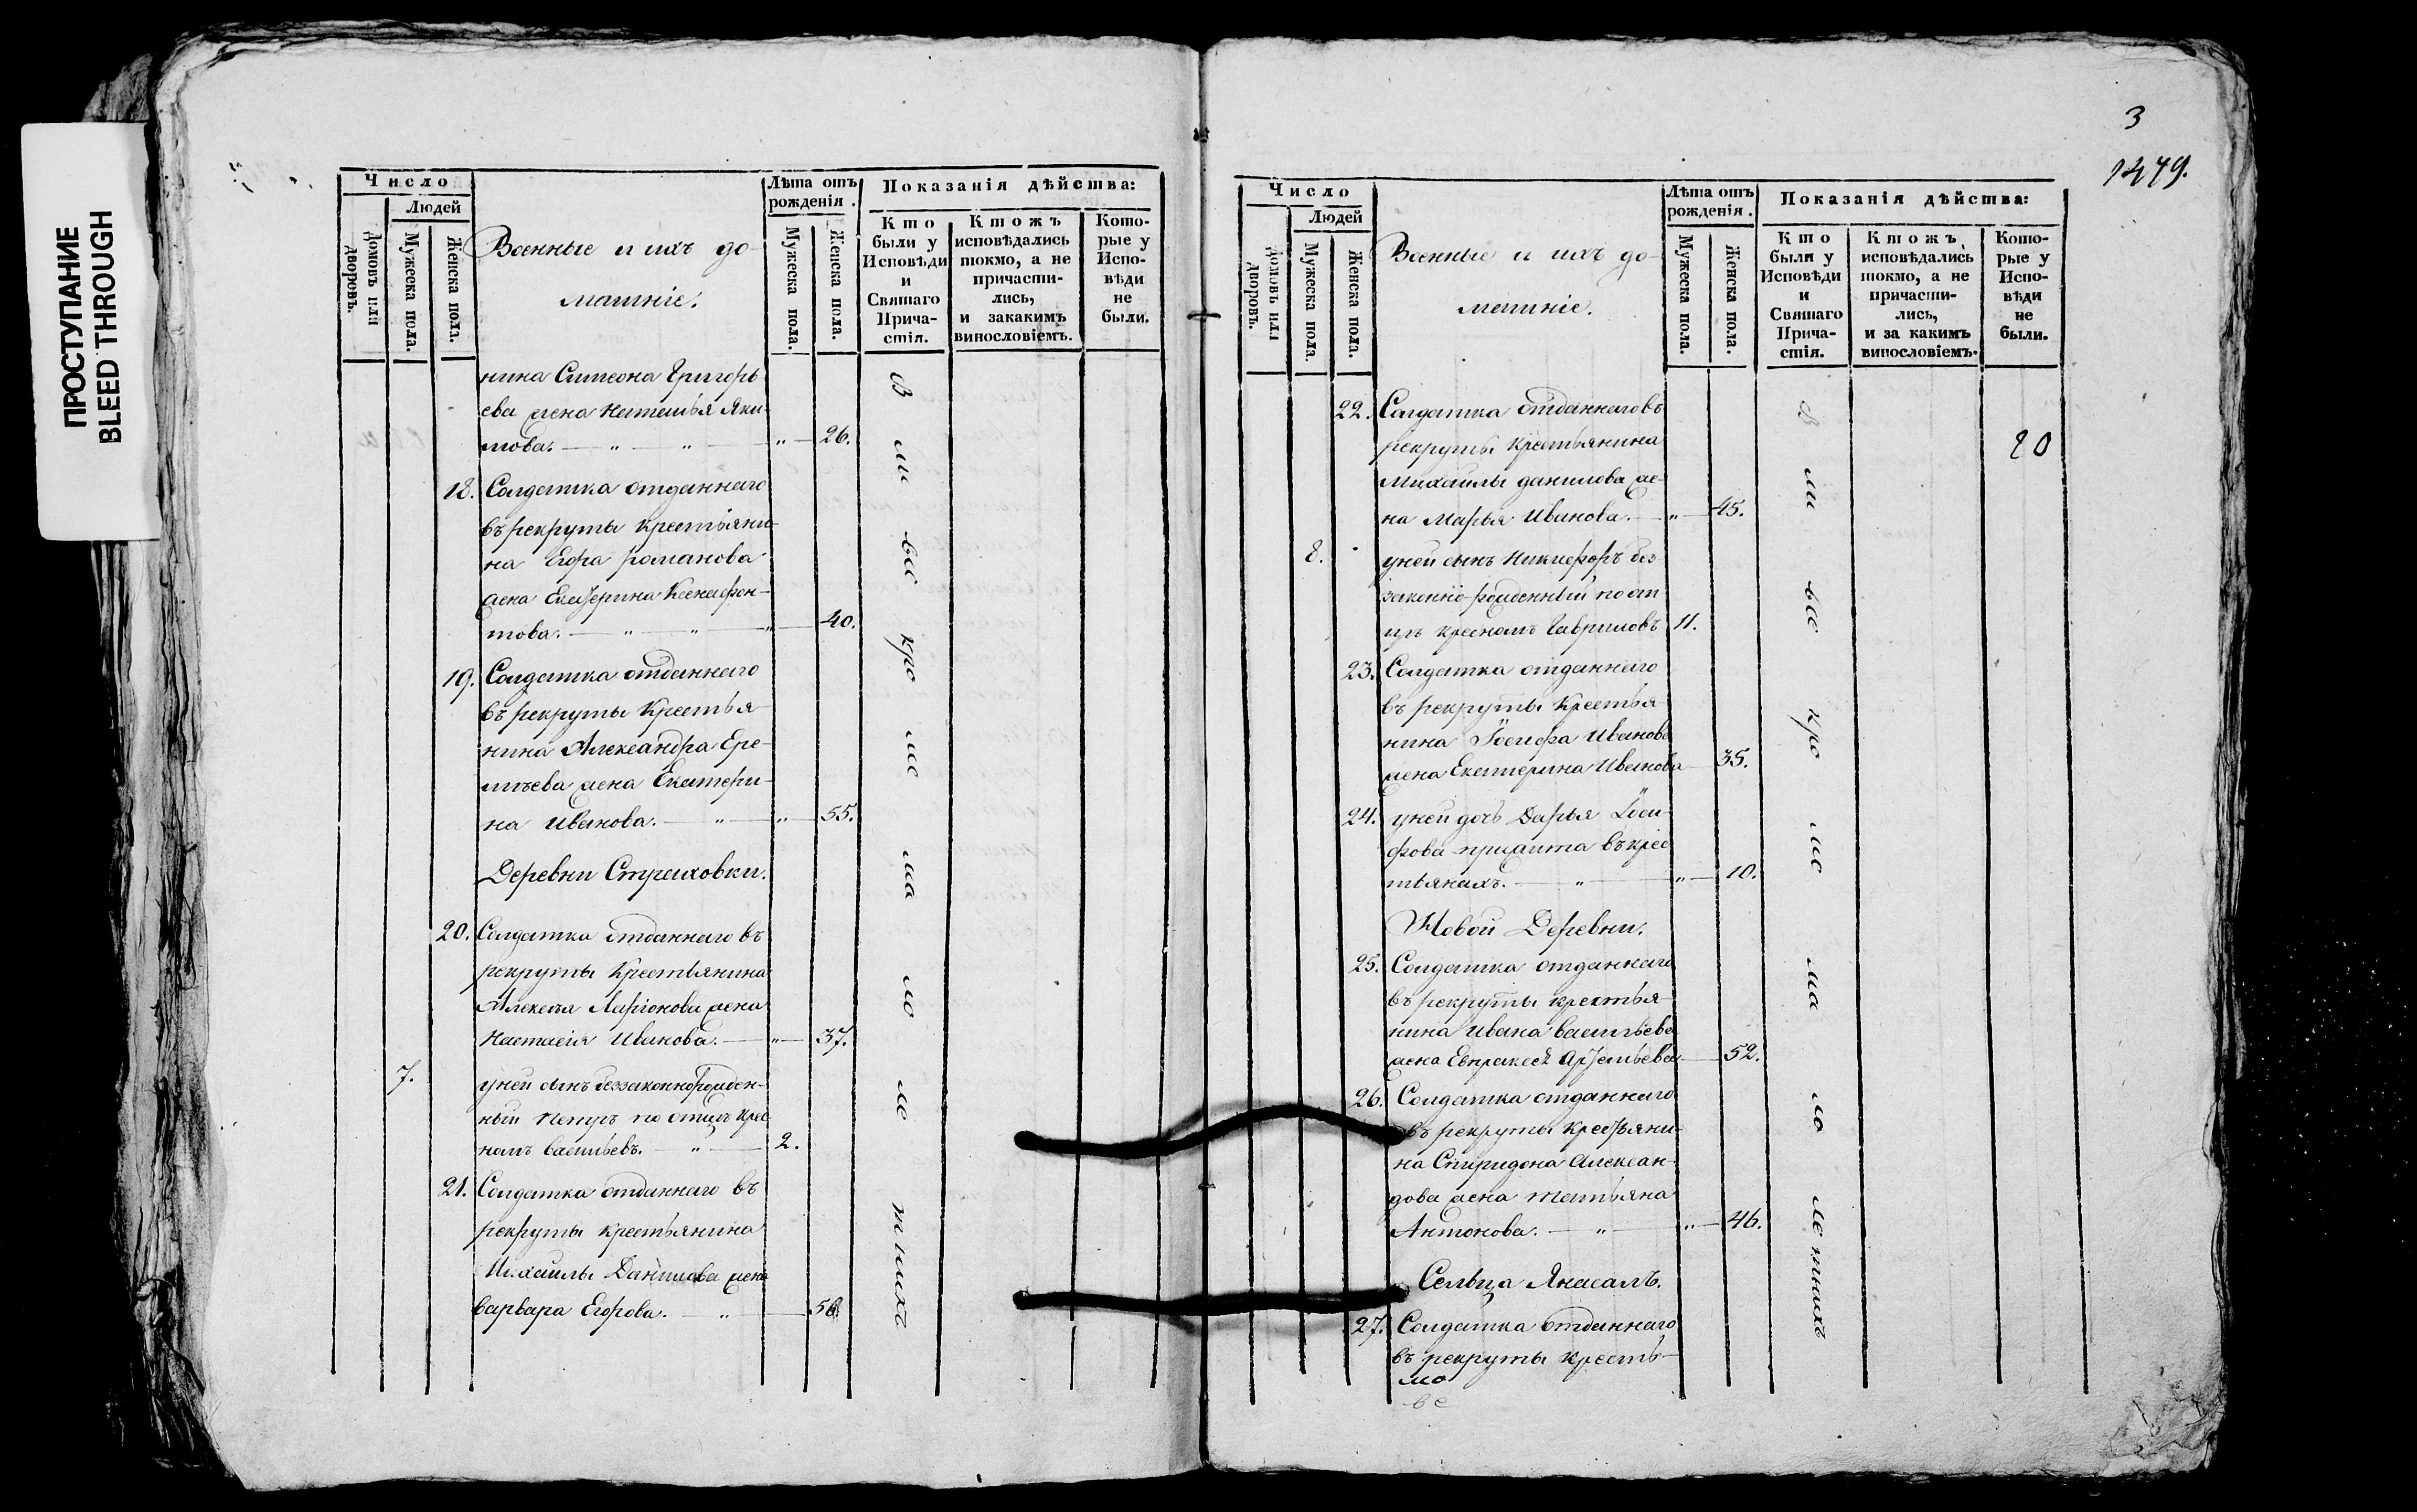 ПРОСТУПАНИЕ
BLEED THROUGH
Число
Людей
Домовъ или дворовъ.
Мужеска пола.
Женска пола.
Военные и ихъ до-
машнiе.
Лѣта отъ
рожденiя.
Мужеска пола.
Женска пола.
Показанiя дѣйства:
Кто
были у
Исповѣди
и
Святаго
Прича-
стiя.
Ктожъ
исповѣдались
токмо, а не
причасти-
лись,
и закакимъ
винословiемъ.
Кото-
рые у
Испо-
вѣди
не
были.
нина Симеона Григорь
ева жена Наталья Яки
мова. — " — " — " — 26.
18. Солдатка отданнаго
въ рекруты крестьяни-
на Егора Романова
жена Екатерина Ксенофон-
това. — " — " — " — 40.
19. Солдатка отданнаго
въ рекруты Крестья
нина Александра Ере-
мѣева жена Екатери-
на Иванова. — " — " — 55.
Деревни Стреиховки.
20. Солдатка отданнаго въ
рекруты Крестьянина
Алексѣя Ларiонова жена
Настасiя Иванова. — " — 37.
7. уней сынъ беззаконнорожден-
ный Петръ по отцѣ крес
номъ Васильевъ. — " — 2.
21. Солдатка отданнаго въ
рекруты крестьянина
Михаилы Данилова жена
Варвара Егорова. — " —
В ми все кро ме ма ло ле тнихъ
3
1479.
Число
Людей
Домовъ или дворовъ.
Мужеска пола.
Женска пола.
Военные и ихъ до-
машнiе.
Лѣта отъ
рожденiя.
Мужеска пола.
Женска пола.
Показанiя дѣйства:
Кто
были у
Исповѣди
и
Святаго
Прича-
стiя.
Ктожъ
исповѣдались
токмо, а не
причасти-
лись,
и за какимъ
винословiемъ.
Кото-
рые у
Испо-
вѣди
не
были.
22. Солдатка отданнаго въ
рекруты Крестьянина
Михаилы Данилова же-
на Марья Иванова. — " — 45.
8. уней сынъ Никифоръ без
законно-рожденный по от
цѣ кресномъ Гавриловъ 11.
23. Солдатка отданнаго
въ рекруты Крестья
нина Iосифа Иванова
жена Екатерина Иванова — 35.
24. уней дочь Дарья Iоси-
фова прижита въ крес
тьянахъ. — " — " — 10.
Новой Деревни.
25. Солдатка отданнаго
въ рекруты крестья-
нина Ивана Васильева
жена Евпраксѣ Артемьева. — 52.
26. Солдатка отданнаго
въ рекруты Крестьяни-
на Спиридона Алексан-
дова жена Татьяна
Антонова. — " — " — 46.
Сельца Янасалъ.
27. Солдатка отданнаго
въ рекруты кресть-
мо
все
ми все кро ме ма ло ле тнихъ
20